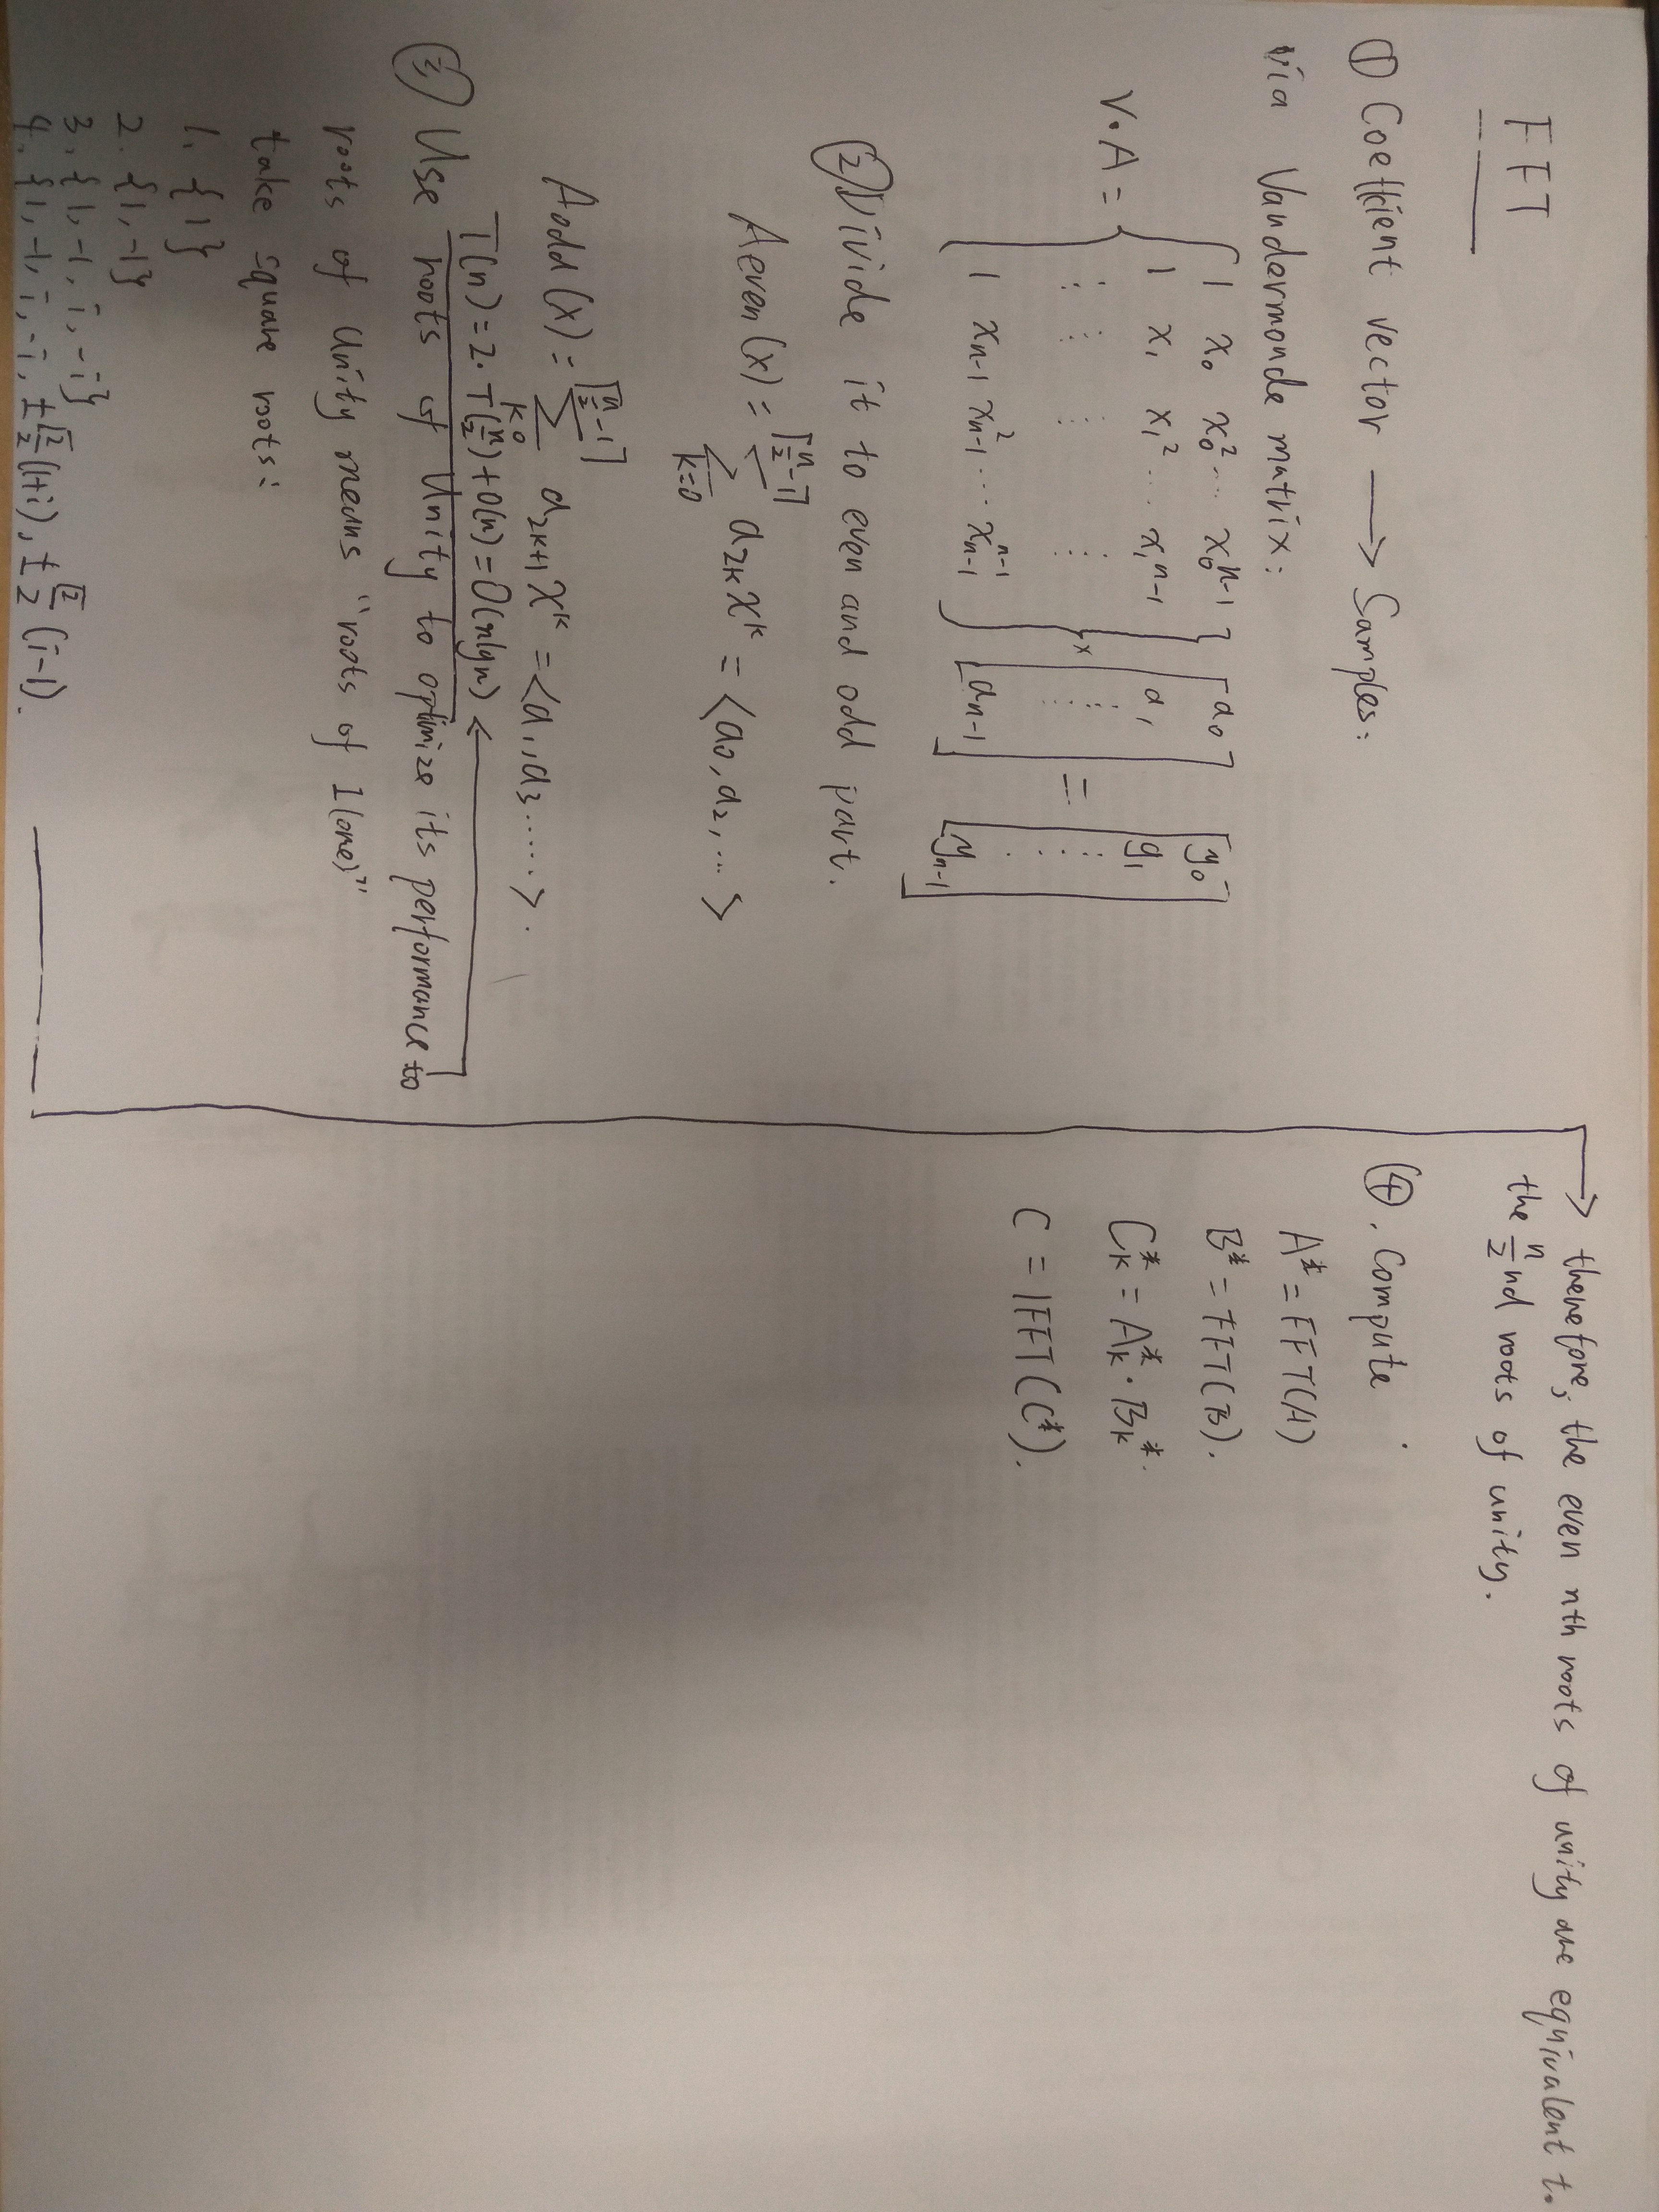 FFT
① Coefficient vector ⟶ Samples:
via Vandermonde matrix:
1 x₀ x₀² ... x₀ⁿ⁻¹ a₀ y₀
1 x₁ x₁² ... x₁ⁿ⁻¹ a₁ y₁
V·A = { ⋮ ⋮ ⋮ ⋮ } × [ ⋮ ] = [ ⋮ ]
1 xₙ₋₁ xₙ₋₁² ... xₙ₋₁ⁿ⁻¹ aₙ₋₁ yₙ₋₁
② Divide it to even and odd part.
Aeven(x) = ∑_{k=0}^{⌈n/2-1⌉} a₂ₖxᵏ = <a₀, a₂, ...>
Aodd(x) = ∑_{k=0}^{⌈n/2-1⌉} a₂ₖ₊₁xᵏ = <a₁, a₃ .....>.
T(n) = 2·T(n/2) + O(n) = O(nlgn)
③ Use roots of Unity to optimize its performance to
roots of Unity means "roots of 1(one)"
take square roots:
1. {1}
2. {1, -1}
3. {1, -1, i, -i}
4. {1, -1, i, -i, ±√2/2(1+i), ±√2/2(i-1).
therefore, the even nth roots of unity are equivalent to
the n/2nd roots of unity.
④. Compute
A* = FFT(A)
B* = FFT(B).
Cₖ* = Aₖ*·Bₖ*.
C = IFFT(C*).